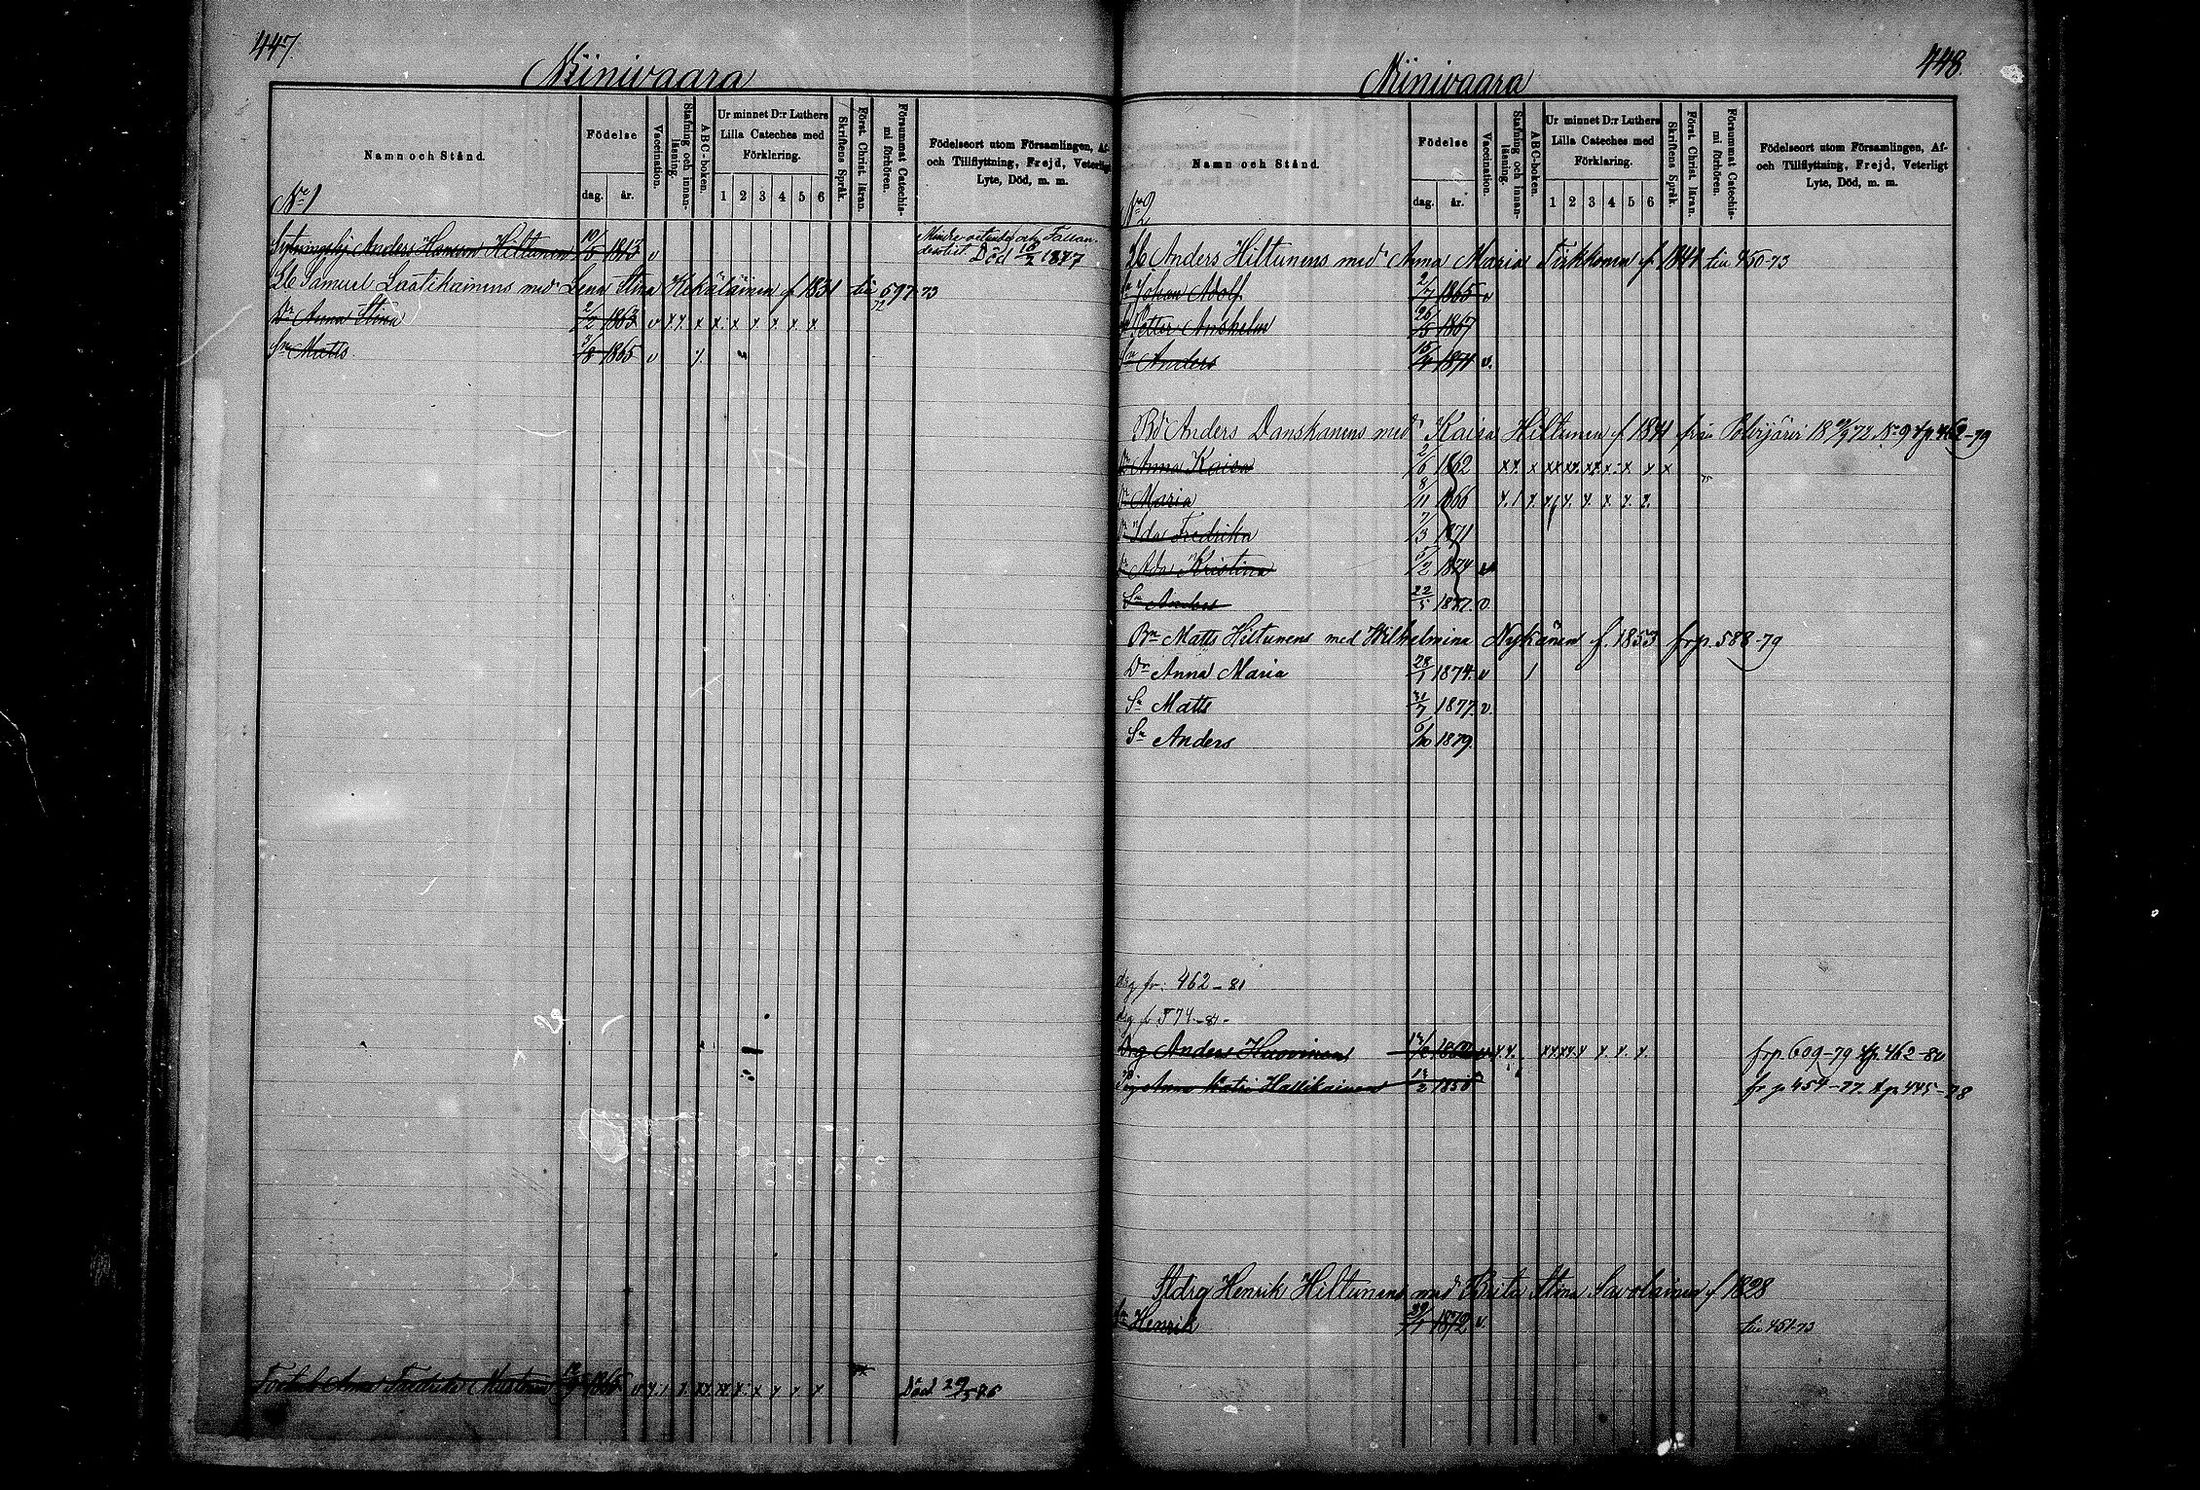 447
Niinivaara
Namn och Stånd.
Födelse
dag. år.
Vaccination.
Stafning och innanläsning.
ABC-boken.
Ur minnet D:r Luthers Lilla Cateches med Förklaring.
1 2 3 4 5 6
Skriftens Språk.
Först. Christ. läran.
Försummat Catechismi förhören.
Födelseort utom Församlingen, Af- och Tillflyttning, Frejd, Veterligt Lyte, Död, m. m.
No 1
Anders Hansson Hiltunen 10/5 1813 v Död 10/2 1877
Lb Samuel Laatikainens med Lena Stina Kekäläinen f 1831 till 597-73
Dr Anna Stina 2/2 1863 v x x x x x x x x x
Sn Matts 3/8 1865 v
Anna Fredrika Mustonen 1865 v Död 29/5 76
448.
Niinivaara
Namn och Stånd.
Födelse
dag. år.
Vaccination.
Stafning och innanläsning.
ABC-boken.
Ur minnet D:r Luthers Lilla Cateches med Förklaring.
1 2 3 4 5 6
Skriftens Språk.
Först. Christ. läran.
Försummat Catechismi förhören.
Födelseort utom Församlingen, Af- och Tillflyttning, Frejd, Veterligt Lyte, Död, m. m.
No 2
Lb Anders Hiltunens med Anna Maria Tirkkonen f 1841 till 450-73
Sn Johan Adolf 2/7 1865 v
Sn Petter Anshelm 26/5 1867
Sn Anders 15/4 1871 v.
Bd Anders Danskanens med Kaisa Hiltunen f 1841 från Polvijärvi 72 No 9 tp 462-79
Dr Anna Kaisa 2/6 1862
Dr Maria 8/11 1866
Dr Ida Fredrika 7/3 1871
Dr Ada Kristina 5/2 1874 v
Sn Anders 22/5 1877. v.
Bn Matts Hiltunens med Wilhelmina Nykänen f. 1853 frp. 588-79
Dr Anna Maria 28/1 1874. v
Sn Matts 31/7 1877. v.
Sn Anders 6/10 1879.
drg fr: 462-81
drg fr 574-81-
Drg Anders Huovinen frp. 609-79 tp. 462-80
Pig Anna Katri Hallikainen 12/2 1850 fr p 454-77. tp 445-78
Stdrg Henrik Hiltunens med Brita Stina Savolainen f 1828
Sn Henrik 1872 v. till 451-73